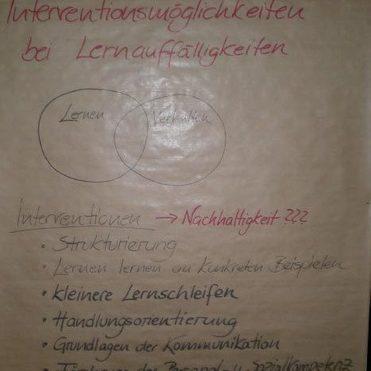 Interventionsmöglichkeiten
bei Lernauffälligkeiten
Lernen Verhalten
Interventionen → Nachhaltigkeit ???
• Strukturierung
• Lernen lernen an konkreten Beispielen
• kleinere Lernschleifen
• Handlungsorientierung
• Grundlagen der Kommunikation
• der Sozialkompetenz